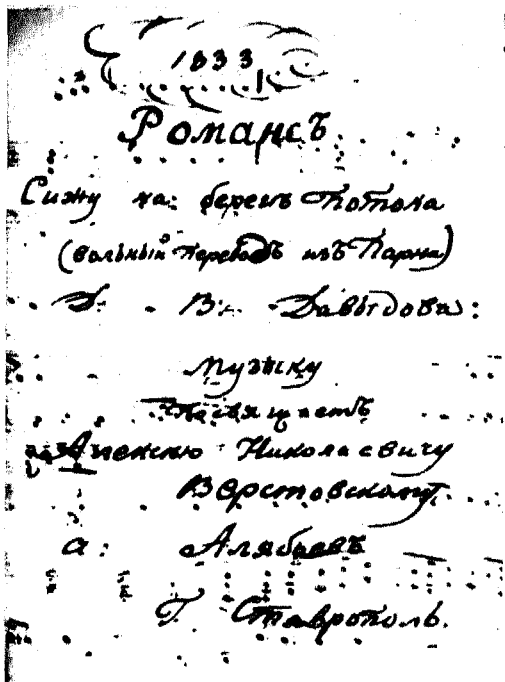 1833
Романсъ
Сижу на берегѣ потока
(вольный переводъ изъ Парни)
Д. В. Давыдова:
музыку
Посвящаетъ
Алексѣю Николаевичу
Верстовскому.
А: Алябьевъ
Г. Ставрополь.